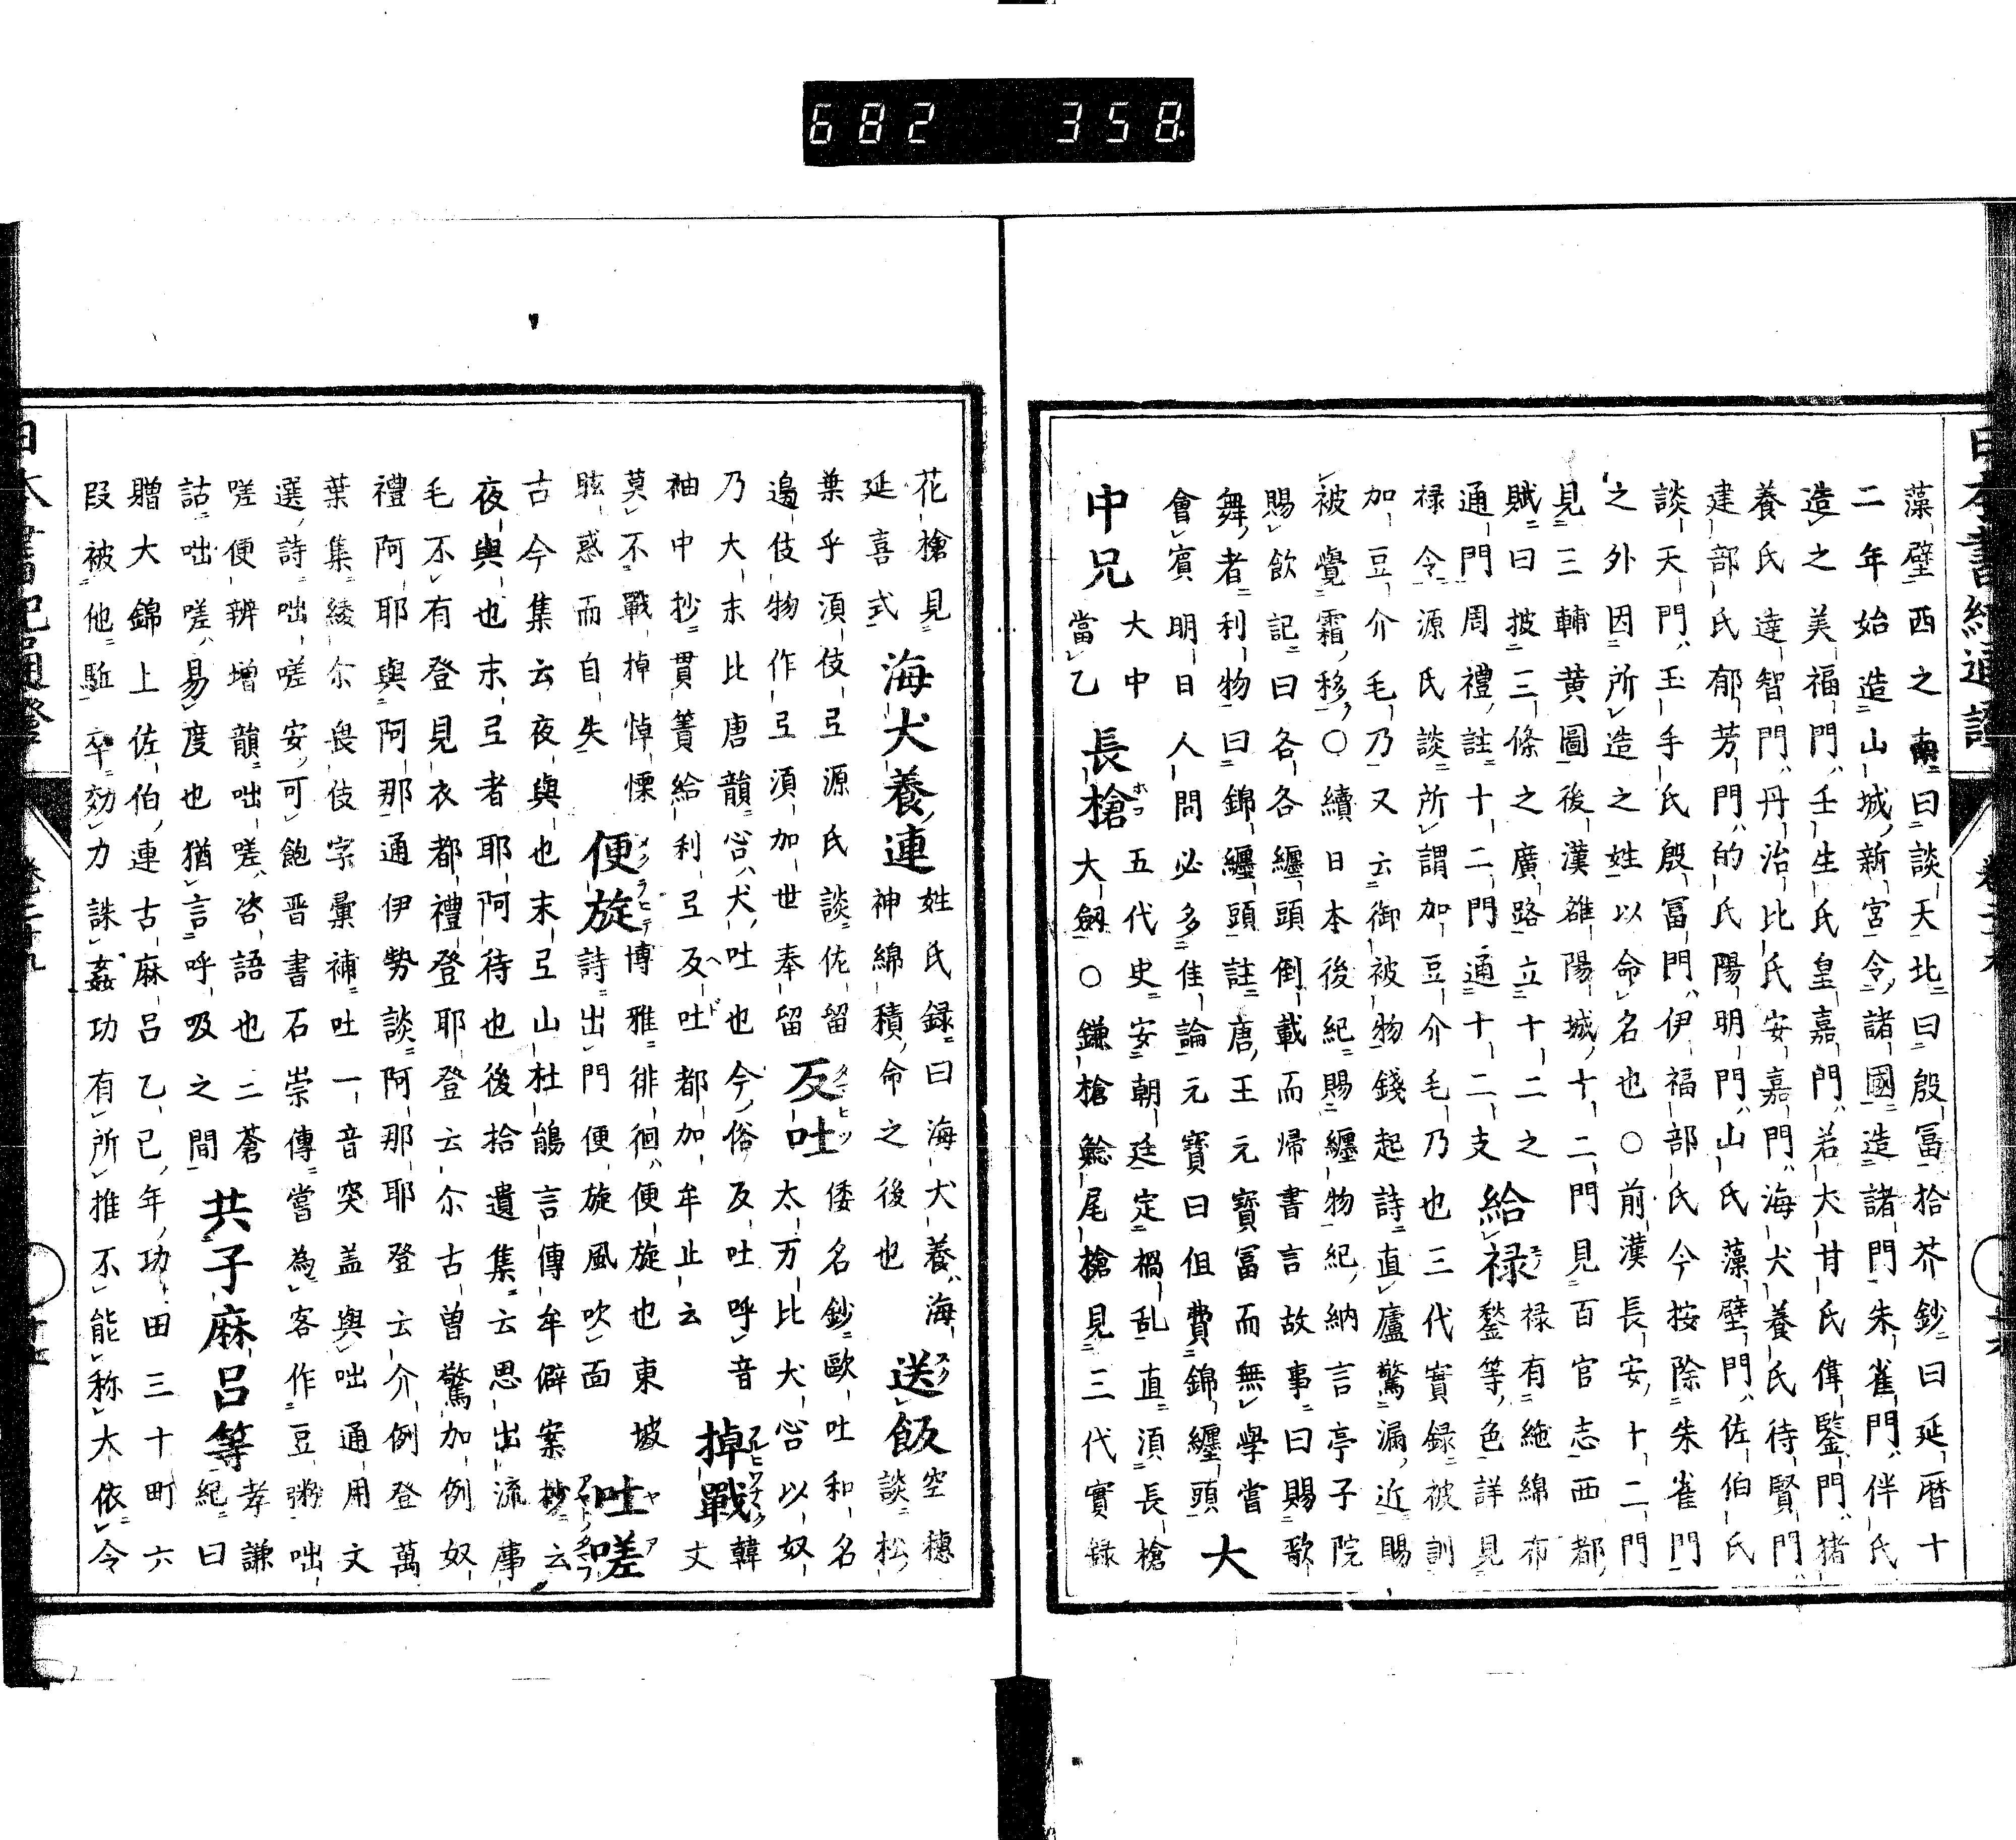 682 358
藻壁西之南曰談天北曰殷冨拾芥鈔曰延暦十
二年始造山城新宮令諸國造諸門朱雀門伴氏
造之美福門壬生氏皇嘉門若犬甘氏偉鑒門猪
養氏達智門丹治比氏安嘉門海犬養氏待賢門
建部氏郁芳門的氏陽明門山氏藻壁門佐伯氏
談天門玉手氏殷冨門伊福部氏今按除朱雀門
之外因所造之姓以命名也○前漢長安十二門
見三輔黄圖後漢雒陽城十二門見百官志西都
賦曰披三條之廣路立十二之
通門周禮註十二門通十二支
給禄
禄有絁綿布
鍪等色詳見
禄令源氏談所謂加豆介毛乃也三代實録被訓
加豆介毛乃又云御被物錢起詩直廬驚漏近賜
被覺霜移○續日本後紀賜纏物紀納言亭子院
賜飲記曰各各纏頭倒載而帰書言故事曰賜歌
舞者利物曰錦纏頭註唐王元寳冨而無學嘗
會賓明日人問必多佳論元寳曰但費錦纏頭
大
中兄
大中
當乙
長槍
五代史安朝廷定禍乱直湏長槍
大劔○鎌槍鯰尾槍見三代實録
花槍見
延喜式
海犬養連
姓氏録曰海犬養海
神綿積命之後也
送飯
空穗
談松
葉乎湏伎弖源氏談佐留
邉伎物作弖湏加世奉留
反吐
倭名鈔歐吐和名
太万比犬㕣以奴
乃大末比唐韻㕣犬吐也今俗反吐呼音
袖中抄貫簀給利弖反吐都加牟止云
掉戰
韓
丈
莫不戰掉悼慄
眩惑而自失
便旋
博雅徘徊便旋也東坡
詩出門便旋風吹面
吐嗟
古今集云夜與也末弖山杜鵑言傳牟僻案抄云
夜與也末弖者耶阿待也後拾遺集云思出流事
毛不有登見衣都禮登耶登云尓古曽驚加例奴
禮阿耶與阿那通伊勢談阿那耶登云介例登萬
葉集綾尓畏伎字彙補吐一音突盖與咄通用文
選詩咄嗟安可飽晋書石崇傳嘗為客作豆粥咄
嗟便辨增韻咄嗟咨語也二蒼
詁咄嗟易度也猶言呼吸之間
共子麻呂等
孝謙
紀曰
贈大錦上佐伯連古麻呂乙巳年功田三十町六
段被他駈卒効力誅姦功有所推不能称大依令